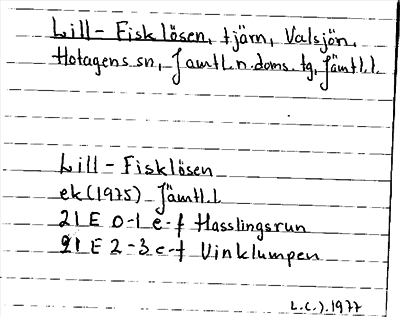 Lill-Fisklösen, tjärn, Valsjön,
Hotagens sn, Jämtl. n. doms. tg, Jämtl.l.
Lill-Fisklösen
ek (1975) Jämtl.l
21 E 0-1 e-f Hasslingsrun
21 E 2-3 e-f Vinklumpen
L.C.J. 1977